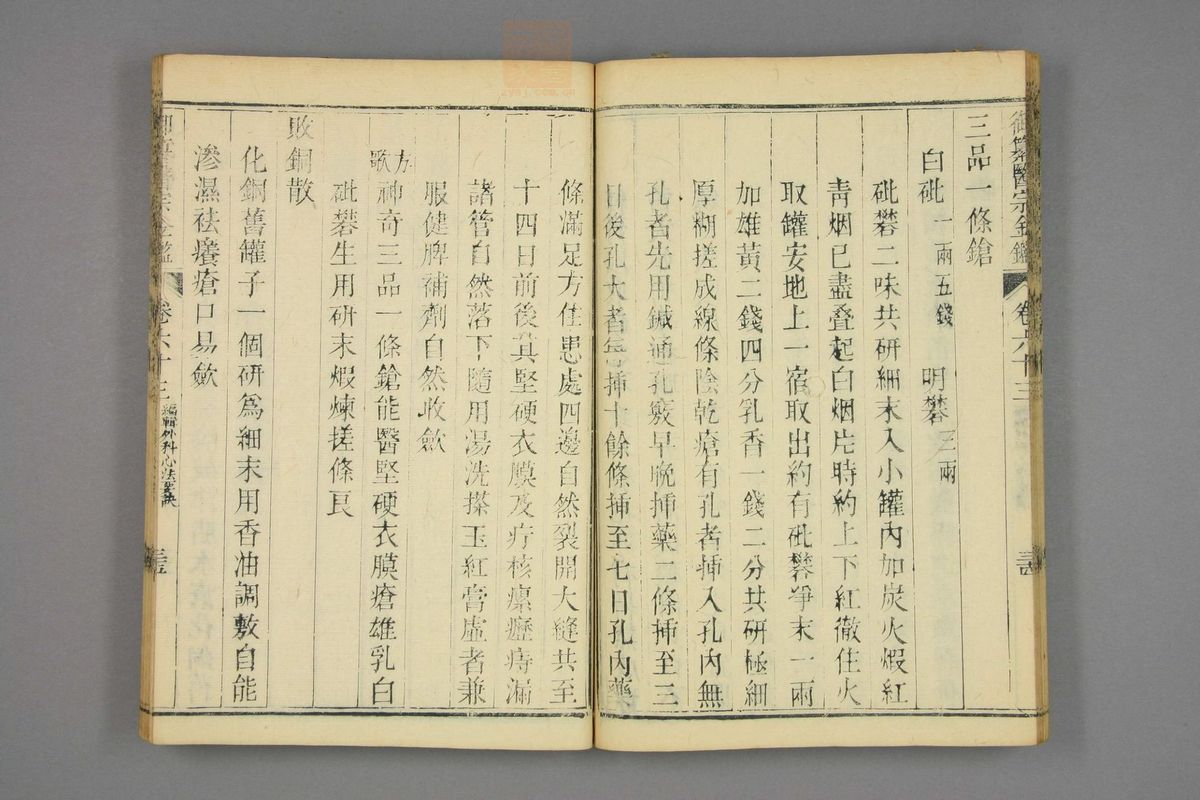 三品一條鎗
白砒一兩五錢 明礬三兩
砒礬二味共研細末入小罐內加炭火煅紅
青烟已盡叠起白烟片時約上下紅徹住火
取罐安地上一宿取出約有砒礬爭末一兩
加雄黃二錢四分乳香一錢二分共研極細
厚糊搓成線條陰乾瘡有孔者揷入孔內無
孔者先用鍼通孔竅早晚揷藥二條揷至三
日後孔大者每揷十餘條揷至七日孔內藥
條滿足方住患處四邊自然裂開大縫共至
十四日前後其堅硬衣膜及疔核瘰癧痔漏
諸管自然落下隨用湯洗搽玉紅膏虛者兼
服健脾補劑自然收歛
方歌 神奇三品一條鎗能醫堅硬衣膜瘡雄乳白
砒礬生用研末煆煉搓條良
敗銅散
化銅舊罐子一個研爲細末用香油調敷自能
滲濕祛癢瘡口易歛
御纂醫宗金鑑 卷六十三
卷六十三 編輯外科心法要訣